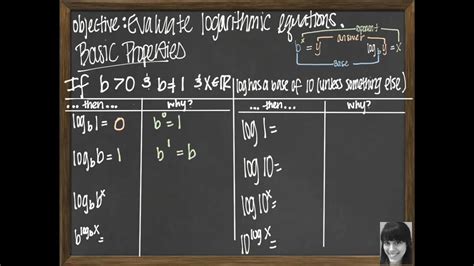 objective: Evaluate logarithmic equations.
Basic Properties
exponent
answer
b^x = y log_b y = x
base
If b > 0 & b ≠ 1 & x∈ℝ
log has a base of 10 (unless something else)
...then... why? ...then... why?
log_b 1 = 0 b^0 = 1 log 1 =
log_b b = 1 b^1 = b log 10 =
log_b b^x log 10^x =
b^log_b x = 10^log x =